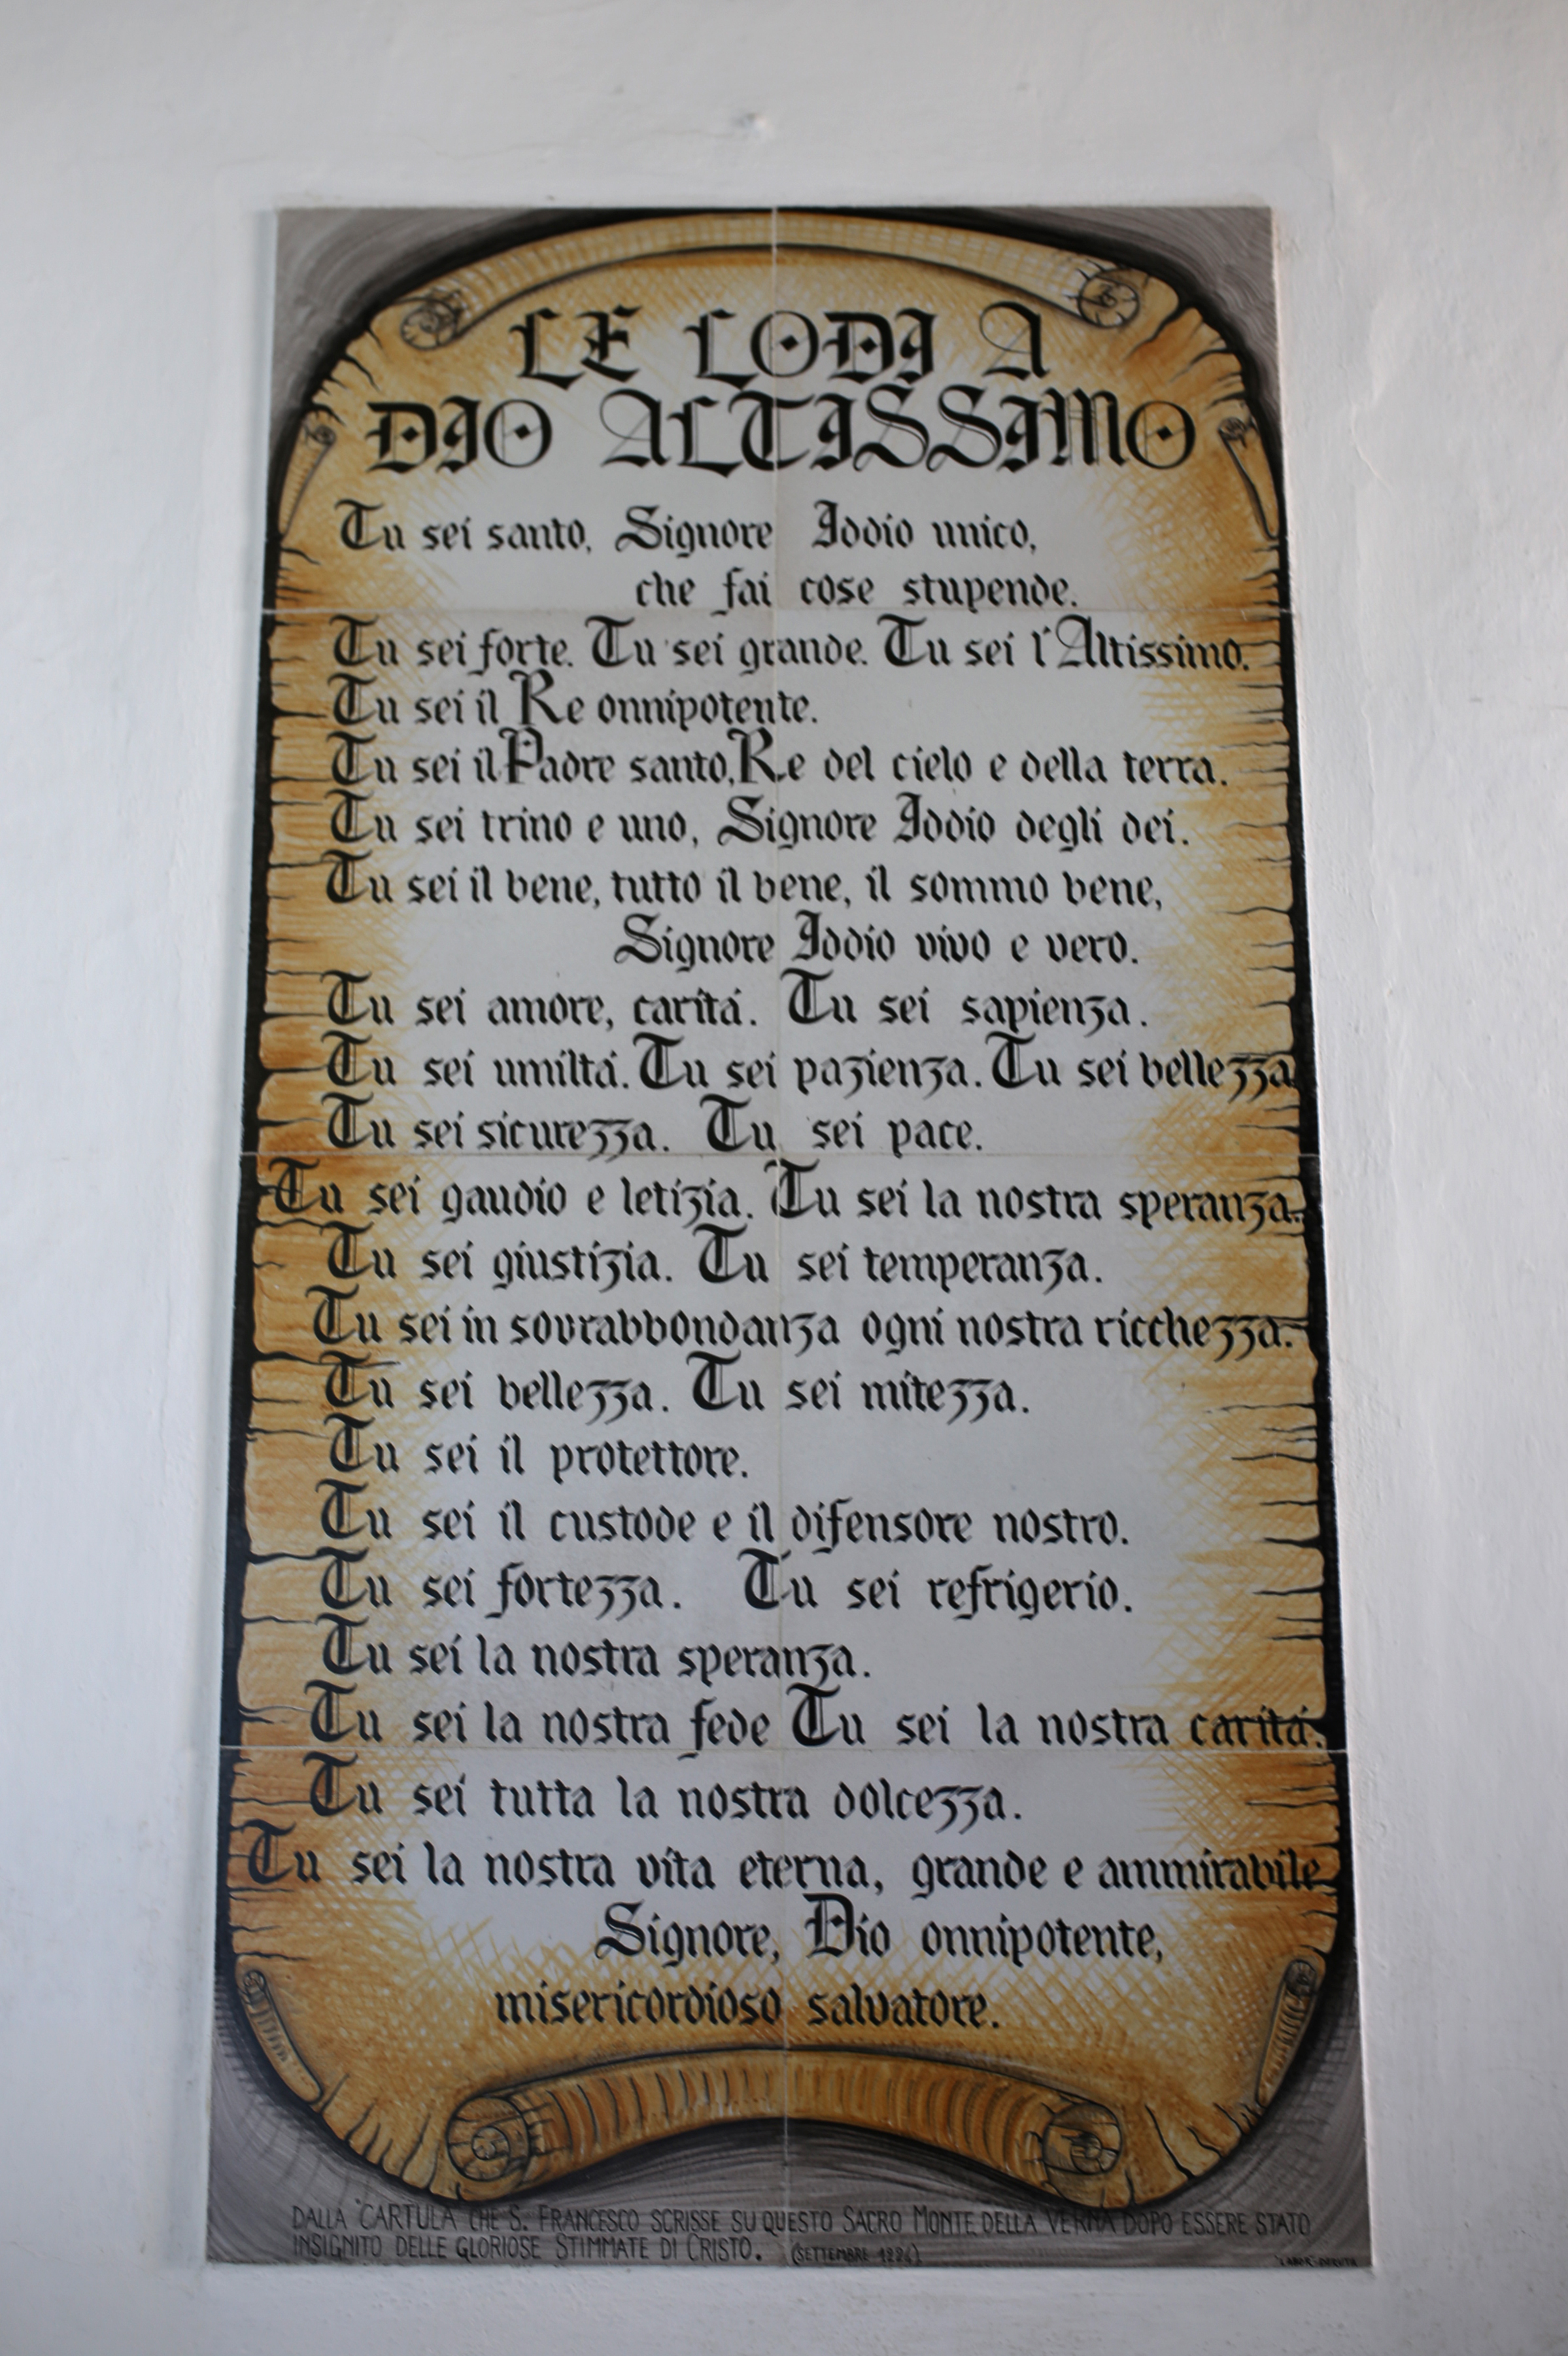 LE LODI A
DIO ALTISSIMO
Tu sei santo, Signore Iddio unico,
che fai cose stupende.
Tu sei forte. Tu sei grande. Tu sei l'Altissimo.
Tu sei il Re onnipotente.
Tu sei il Padre santo, Re del cielo e della terra.
Tu sei trino e uno, Signore Iddio degli dei.
Tu sei il bene, tutto il bene, il sommo bene,
Signore Iddio vivo e vero.
Tu sei amore, caritá. Tu sei sapienza.
Tu sei umiltá. Tu sei pazienza. Tu sei bellezza
Tu sei sicurezza. Tu sei pace.
Tu sei gaudio e letizia. Tu sei la nostra speranza.
Tu sei giustizia. Tu sei temperanza.
Tu sei in sovrabbondanza ogni nostra ricchezza.
Tu sei bellezza. Tu sei mitezza.
Tu sei il protettore.
Tu sei il custode e il difensore nostro.
Tu sei fortezza. Tu sei refrigerio.
Tu sei la nostra speranza.
Tu sei la nostra fede Tu sei la nostra caritá.
Tu sei tutta la nostra dolcezza.
Tu sei la nostra vita eterna, grande e ammirabile
Signore, Dio onnipotente,
misericordioso salvatore.
DALLA "CARTULA" CHE S. FRANCESCO SCRISSE SU QUESTO SACRO MONTE DELLA VERNA DOPO ESSERE STATO
INSIGNITO DELLE GLORIOSE STIMMATE DI CRISTO. (SETTEMBRE 1224)
"LABOR" DERUTA